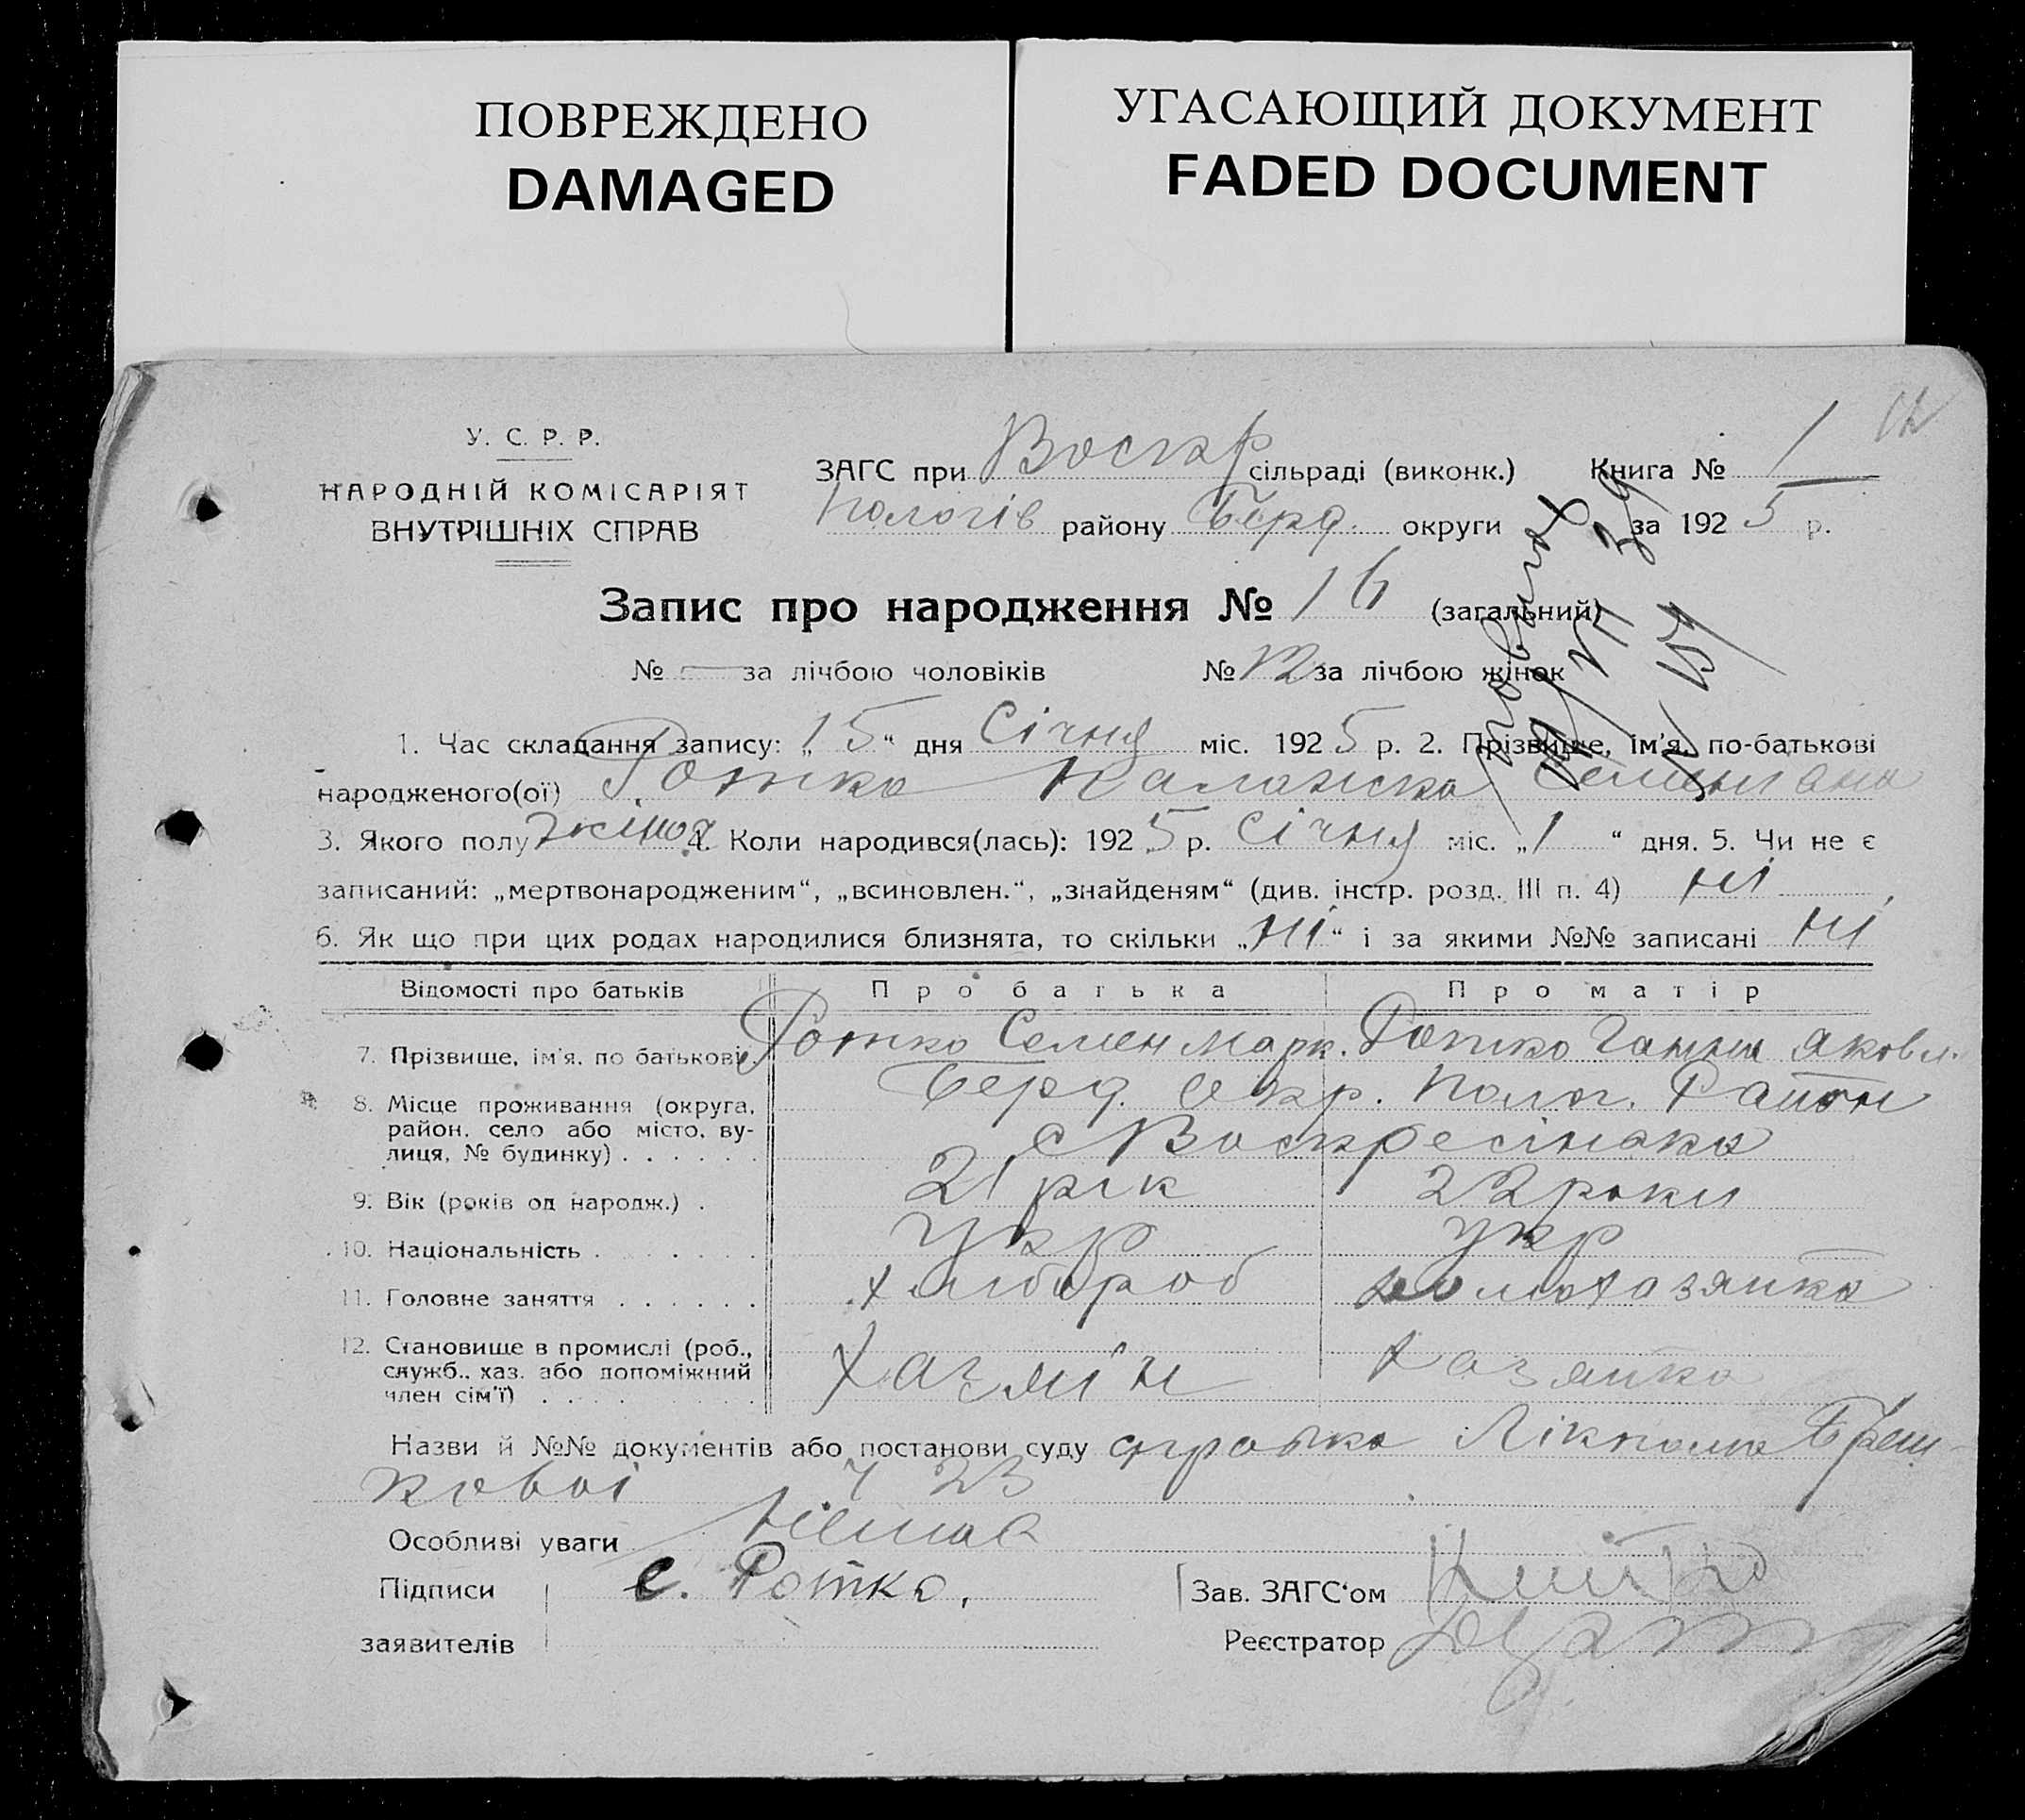 ПОВРЕЖДЕНО
DAMAGED
УГАСАЮЩИЙ ДОКУМЕНТ
FADED DOCUMENT
У. С. Р. Р.
НАРОДНІЙ КОМІСАРІЯТ
ВНУТРІШНІХ СПРАВ
ЗАГС при Воскр сільраді (виконк.) Книга № 1
Пологів района Берд. округи за 1925 р.
Запис про народження № 16 (загальний)
№ — за лічбою чоловіків № 12 за лічбою жінок
1. Час складання запису: „15“ дня Січня міс. 1925 р. 2. Прізвище, ім'я, по-батькові
народженого(ої) Ротко Палажка Семенівна
3. Якого полу жіноч 4. Коли народився(лась): 1925 р. Січня міс. „1“ дня. 5. Чи не є
записаний: „мертвонародженим“, „всиновлен.“, „знайденям“ (див. інстр. розд. III п. 4) ні
6. Як що при цих родах народилися близнята, то скільки „ні“ і за якими №№ записані ні
Відомості про батьків Про батька Про матір
7. Прізвище, ім'я, по батькові Ротко Семен Марк. Ротко Ганна Яковл.
8. Місце проживання (округа, район, село або місто, вулиця, № будинку) Берд. Окр. Полог. Район
с Воскресінка
9. Вік (років од народж.) 21 рік 22 роки
10. Національність укр укр
11. Головне заняття хлібороб домохазяйка
12. Становище в промислі (роб., служб., хаз. або допоміжний член сім'ї) Хазяїн Хазяйка
Назви й №№ документів або постанови суду справка
23
Особливі уваги Немає
Підписи С. Ротко, Зав. ЗАГС'ом
заявителів Реєстратор